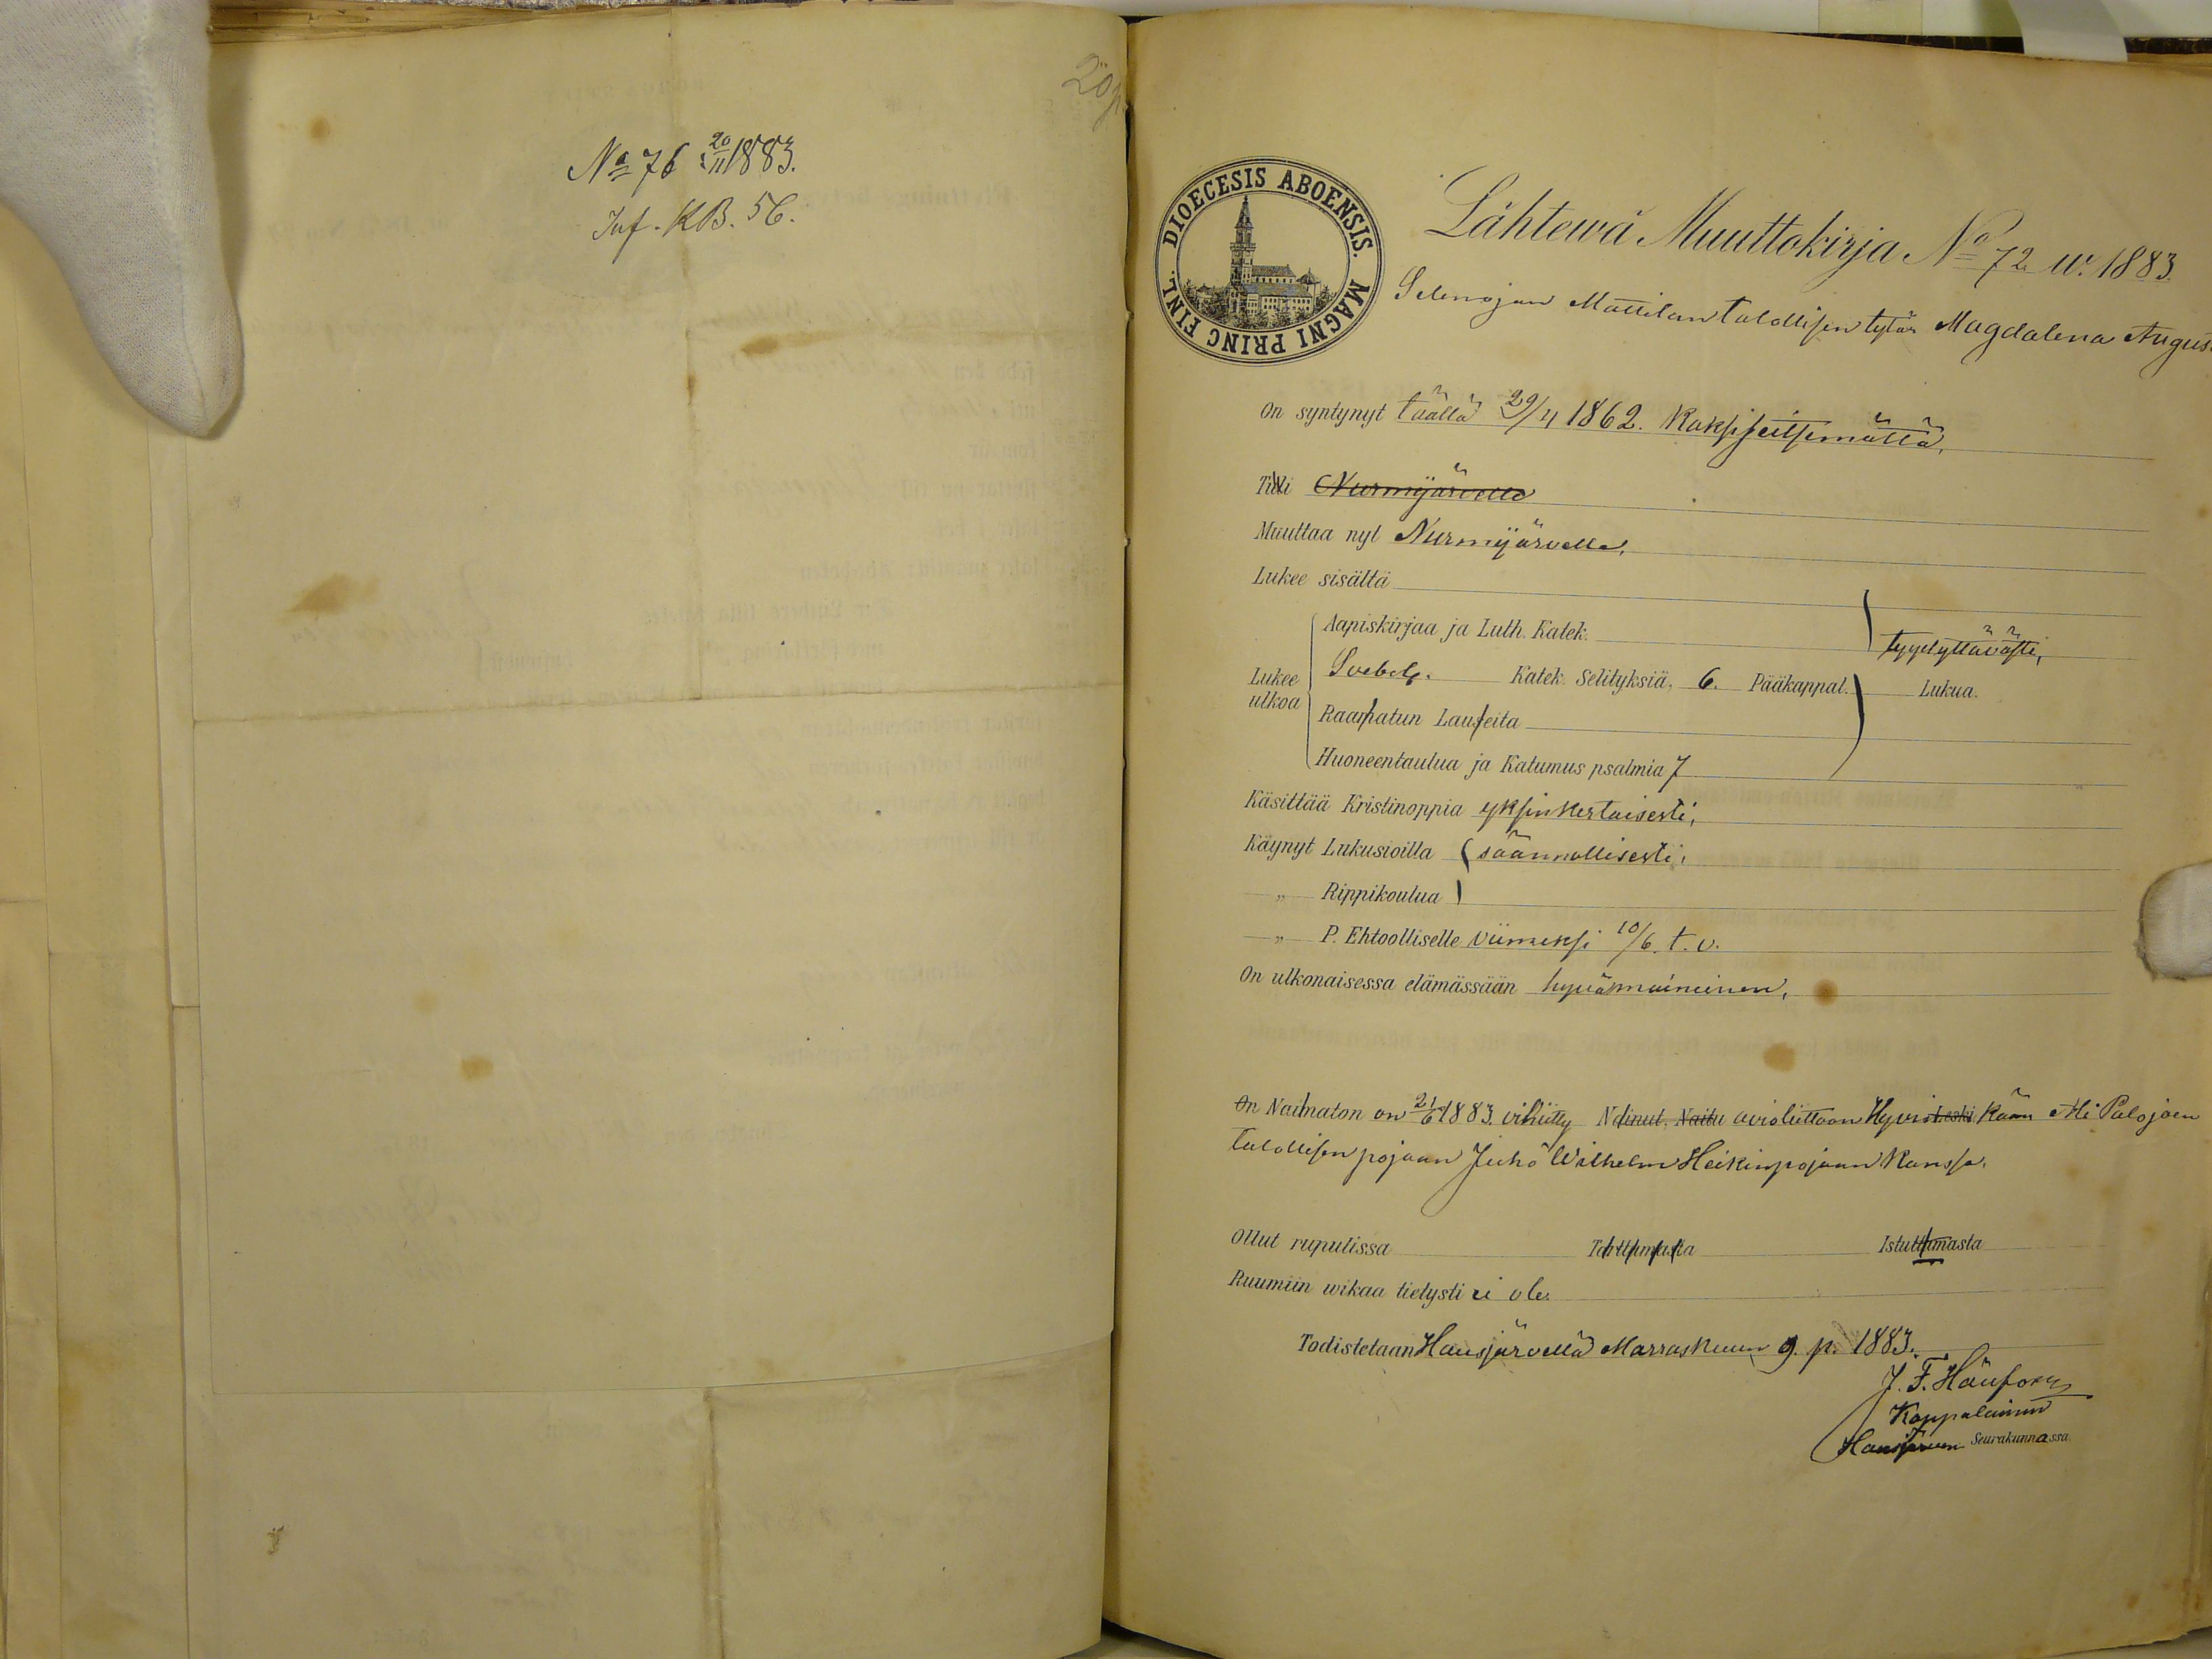 20
No 76 20/11 1883.
Inf. KB. 56.
DIOECESIS ABOENSIS. MAGNI PRINC FINL.
Lähtewä Muuttokirja No 72 w. 1883.
Selenojan Mattilan talollisen tytär Magdalena Augus
On syntynyt täällä 29/4 1862. Kaksiseitsemättä.
Tuli Nurmijärvelle
Muuttaa nyt Nurmijärvelle.
Lukee sisältä
Aapiskirjaa ja Luth. Katek.
tyydyttävästi,
Lukee ulkoa
Svebel. Katek. Selityksiä, 6. Pääkappal. Lukua.
Raamatun Lauseita
Huoneentaulua ja Katumus psalmia 7
Käsittää Kristinoppia yksinkertaisesti,
Käynyt Lukusioilla säännöllisesti,
„ Rippikoulua
„ P. Ehtoolliselle viimeksi 10/6. t. v.
On ulkonaisessa elämässään hyvämaineinen,
On Naimaton on 21/6 1883. vihitty Nainut, Naitu avioliittoon Hyvin Leski kään Ali Palojoen
talollisen pojan Juho Wilhelm Heikinpojan kanssa.
Ollut rupulissa Tarttumasta Istuttamasta
Ruumiin wikaa tietysti ei ole.
Todistetaan Hausjärvellä Marraskuun 9. p. 1883.
J. F.
Kappalainen
Hausjärven Seurakunnassa.